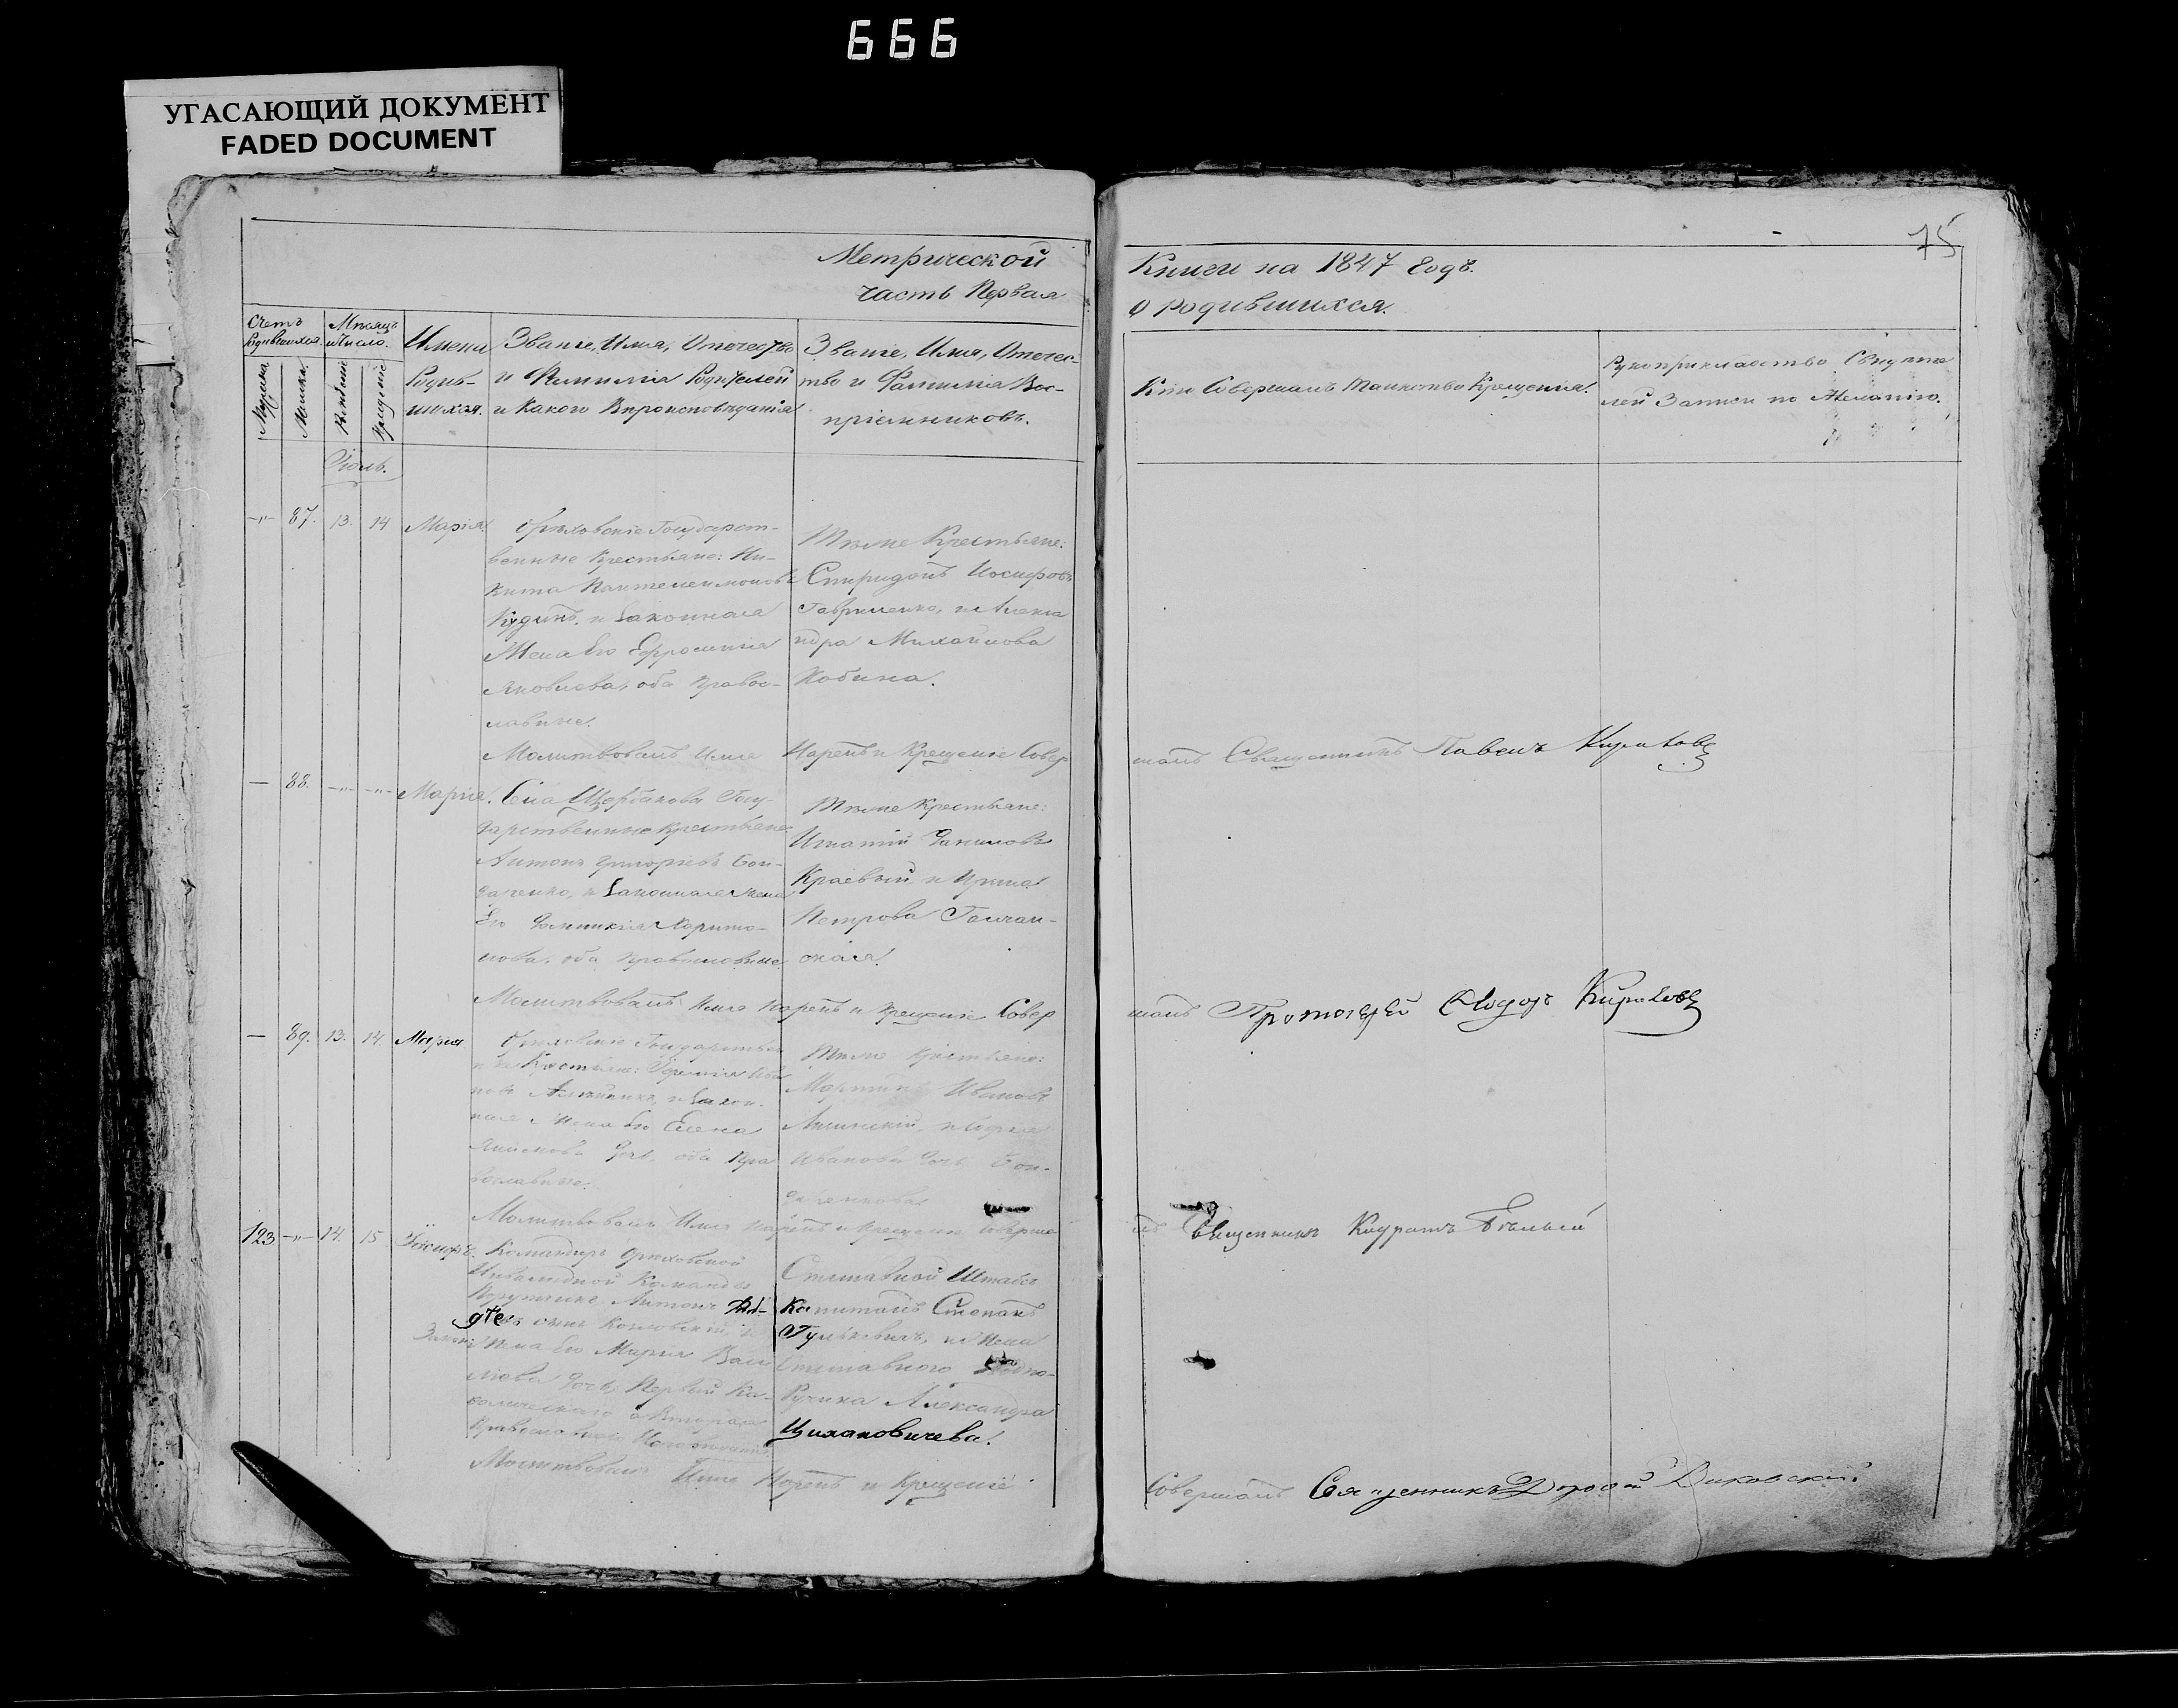 666
УГАСАЮЩИЙ ДОКУМЕНТ
FADED DOCUMENT
75
Метрической
часть Первая
Книги на 1847 годъ.
о родившихся.
Счетъ родившихся.
Мѣсяцъ и Число.
Мужска
Женска
Рожденіе
Крещеніе
Имена
Родив-
шихся.
Званіе, Имя, Отечество
и Фамилія Родителей
и Какого Вѣроисповѣданія
Званіе, Имя, Отечес-
тво и Фамилія Вос-
пріемниковъ.
Кто Совершалъ таинство Крещенія.
Рукоприкладство Свидѣте
лей Записи по Желанію.
Іюль.
-"- 87. 13. 14 Марія.
Орѣховскіе Государст-
венные Крестьяне: Ни-
кита Пантелеимоновъ
Кудинъ и Законная
Жена Его Ефросинія
Яковлева, оба Правос-
лавные.
Тѣже Крестьяне:
Спиридонъ Иосифовъ
Гавриленко, и Алекса
ндра Михайлова
Кобина.
Молитвовалъ Имя Нарекъ и Крещеніе Совер
шалъ Священникъ Павелъ
— 88. -"- -"- Марія.
Села Щербаковки Госу-
дарственные Крестьяне
Антонъ Григорьевъ Бон-
даренко, и Законная Жена
Его Домникія Харито-
нова, оба Православные.
Тѣже Крестьяне:
Игнатій Даниловъ
Краевый, и Ирина
Петрова
Молитвовалъ Имя Нарекъ и Крещеніе Совер
шалъ Протоіерей
— 89. 13. 14. Марія
Орѣховскіе Государствен
ные Крестьяне: Іеремія Ива
новъ и Закон-
ная Жена Его Елена
Дочь, оба Пра
вославные.
Тѣже Крестьяне:
Мартинъ Ивановъ
и Софія
Иванова Дочь Бон-
даренкова
Молитвовалъ Имя Нарекъ и Крещеніе Соверша
лъ Священникъ Кодратъ Бѣлый
123 -"- 14. 15 Іосифъ.
Командиръ Орѣховской
Инвалидной Команды
Порутчикъ Антонъ
сынъ Козловскій, и
Законн: Жена Его Марія Васи
лиева Дочь, Первый Ка-
толическаго а Вторая
Православнаго Исповѣданія
Отставной Штабсъ
Капитанъ Степанъ
Гулькевичъ, и Жена
Отставного Подпо-
ручика Александра
Цихановичева.
Молитвовалъ Имя Нарекъ и Крещеніе
Совершалъ Священникъ Дорофей Диковскій